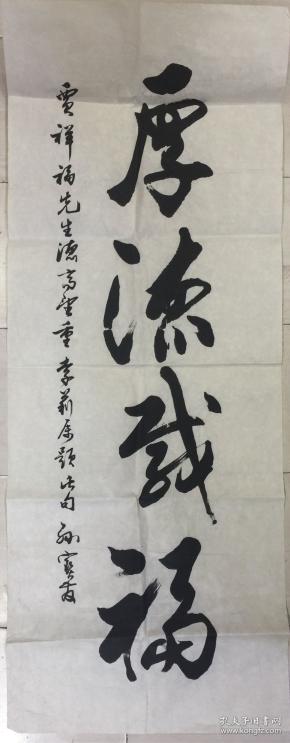 厚德载福
贾祥福先生德高望重李莉原题此句孙宝发
孔夫子旧书网